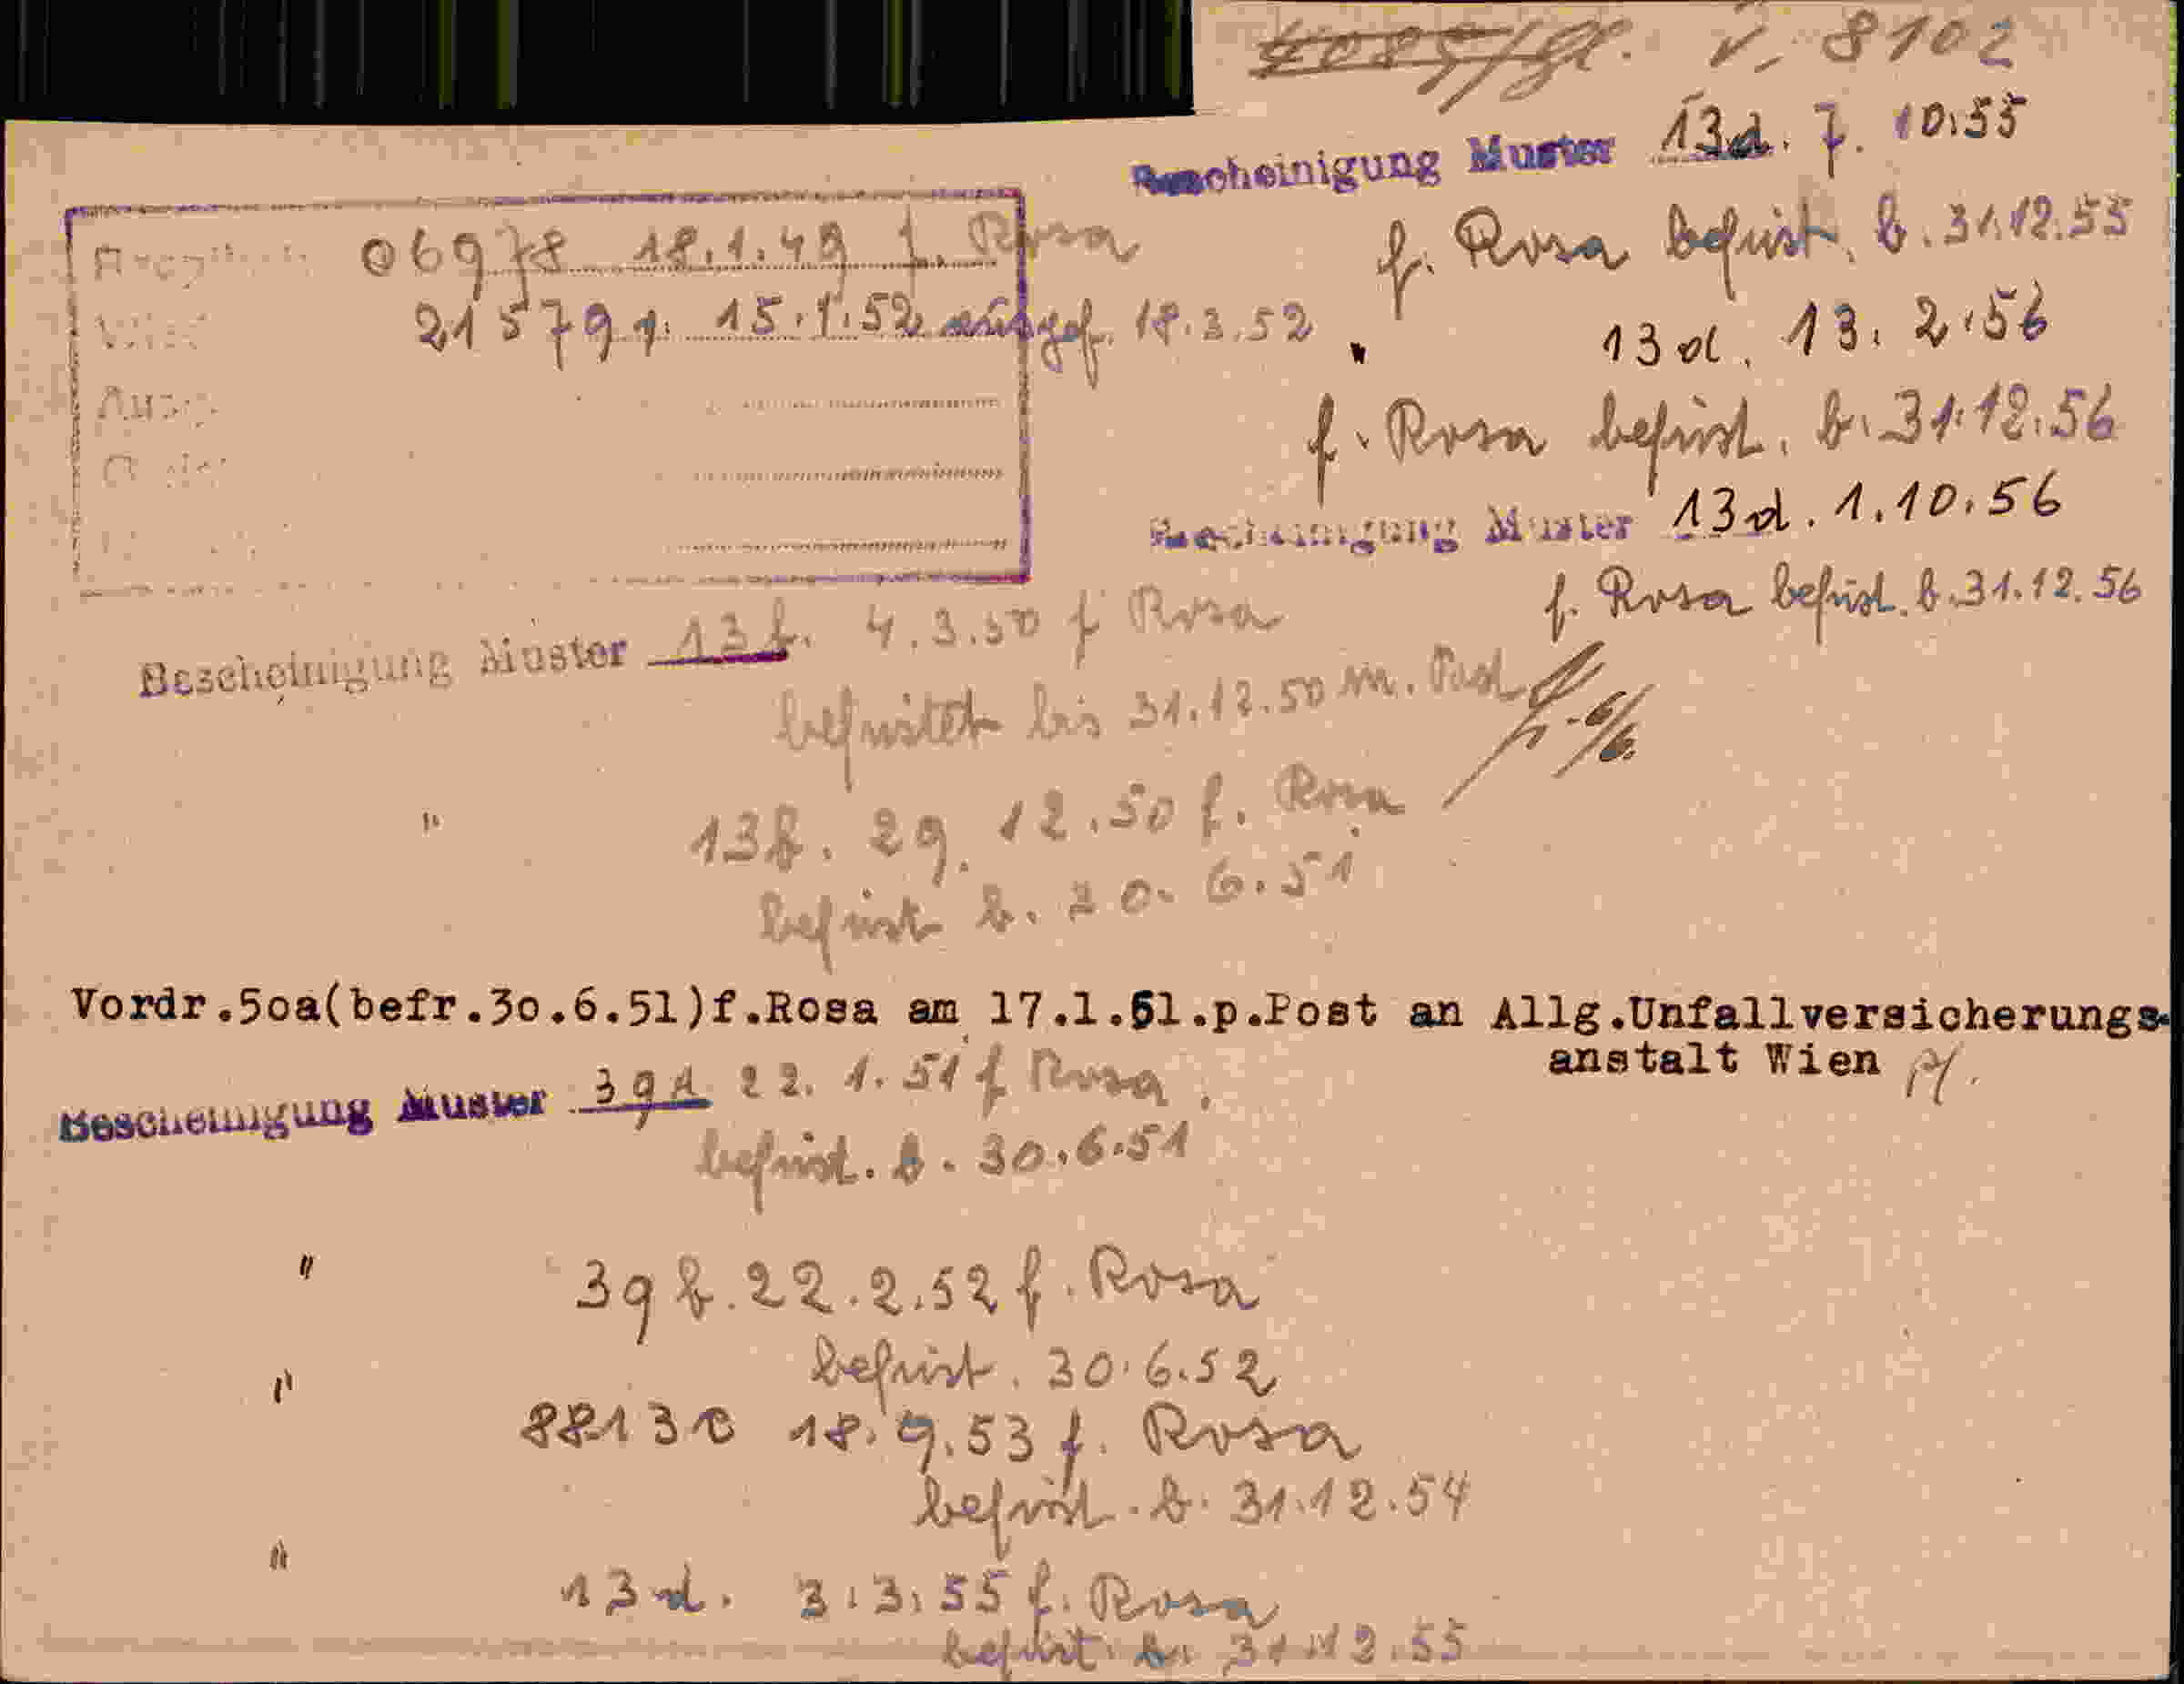 4085/Gl. V. 8102
Bescheinigung Muster 13d. 7. 10.55
f. Rosa befrist. b. 31.12.55
" 13d. 13. 2.56
f. Rosa befrist. b. 31.12.56
Bescheinigung Muster 13d. 1.10.56
f. Rosa befrist. b. 31.12.56
06978 18.1.49 f. Rosa
21579 15.1.52 ausgef. 18.3.52
Bescheinigung Muster 13f. 4.3.50 f Rosa
befristet bis 31.12.50 m. Post
" 13f. 29. 12.50 f. Rosa
befrist b. 30. 6.51
Vordr.5oa(befr.3o.6.51)f.Rosa am 17.1.51.p.Post an Allg.Unfallversicherungs-
anstalt Wien
Bescheinigung Muster 39d 22. 1. 51 f Rosa.
befrist. b. 30.6.51
" 39f. 22.2.52 f. Rosa
befrist. 30.6.52
" 8813c 18.9.53 f. Rosa
befrist. b. 31.12.54
" 13d. 3.3.55 f. Rosa
befrist. b. 31.12.55